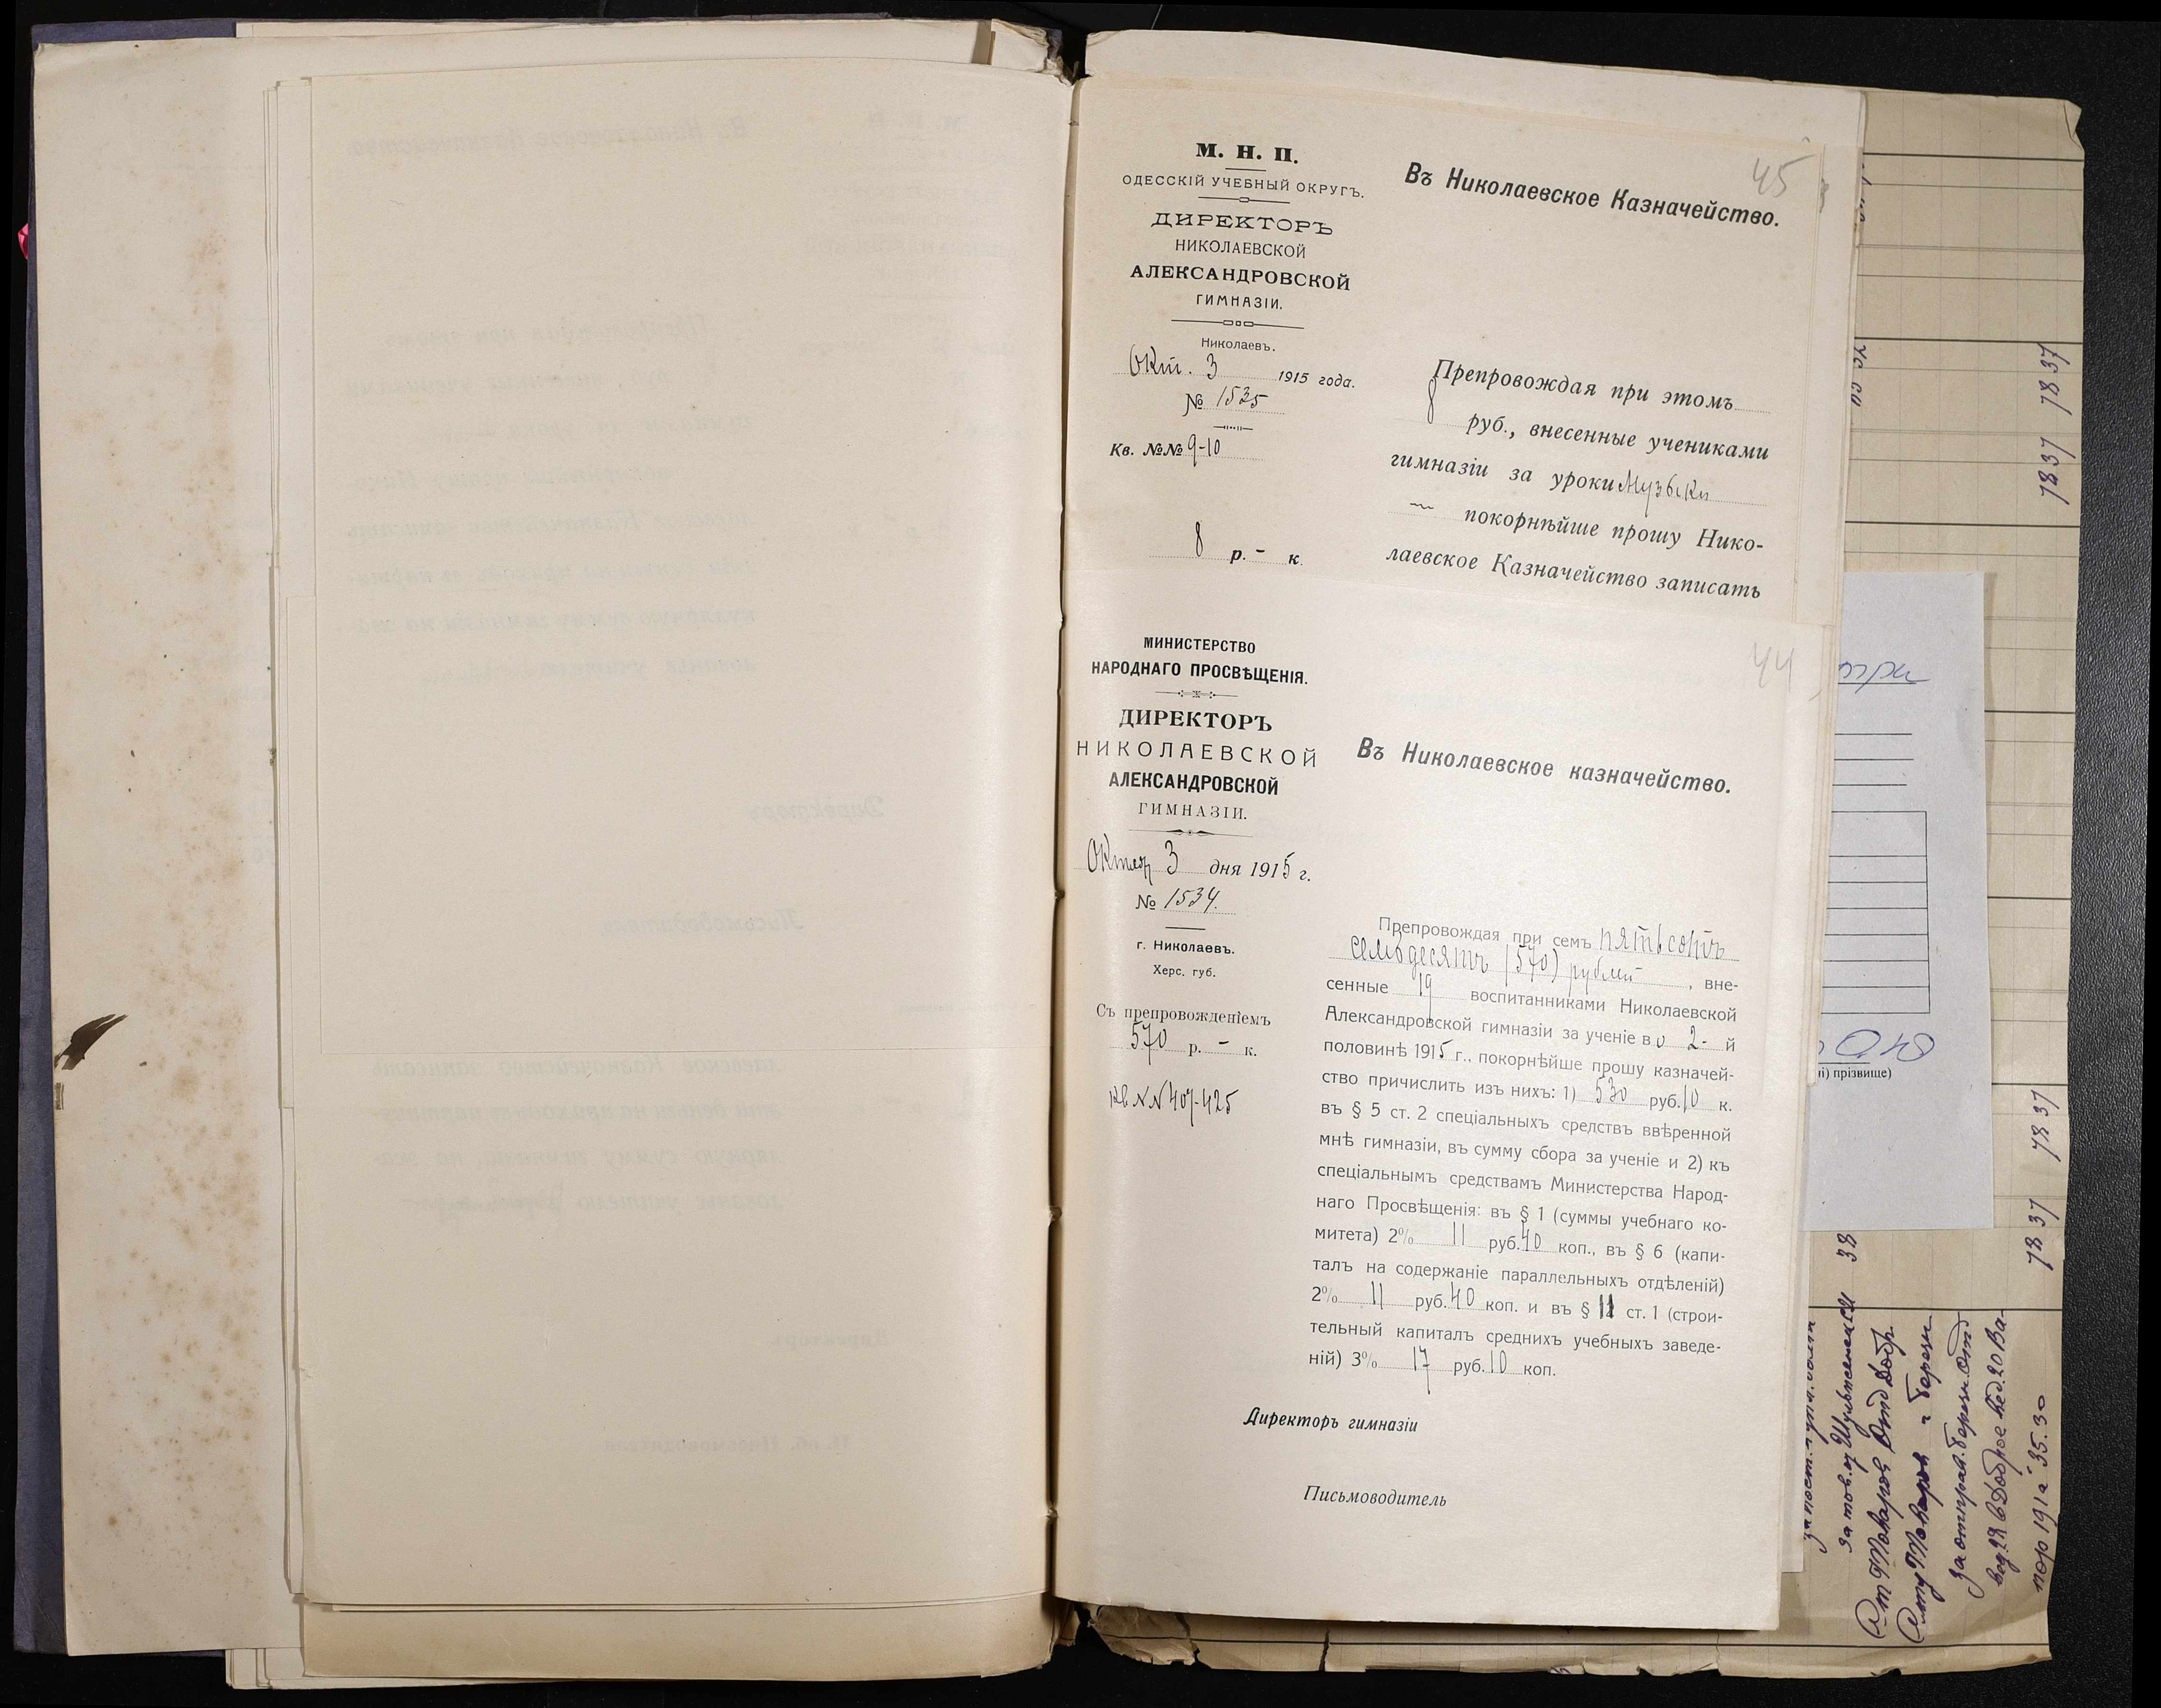 45
М. Н. П.
ОДЕССКІЙ УЧЕБНЫЙ ОКРУГЪ.
ДИРЕКТОРЪ
НИКОЛАЕВСКОЙ
АЛЕКСАНДРОВСКОЙ
ГИМНАЗІИ.
Николаевъ.
Окт. 3 1915 года.
№ 1535
Кв. №№ 9-10
8 р. - к.
Въ Николаевское Казначейство.
Препровождая при этомъ
8 руб., внесенные учениками
гимназіи за уроки Музыки
покорнѣйше прошу Нико-
лаевское Казначейство записать
44
МИНИСТЕРСТВО
НАРОДНАГО ПРОСВѢЩЕНІЯ.
ДИРЕКТОРЪ
НИКОЛАЕВСКОЙ
АЛЕКСАНДРОВСКОЙ
ГИМНАЗІИ.
Октяб 3 дня 1915 г.
№ 1534.
г. Николаевъ.
Херс. губ.
Съ препровожденіемъ
570 р. - к.
Кв N N 407-425
Въ Николаевское казначейство.
Препровождая при семъ пятьсотъ
семьдесятъ (570) рублей, вне-
сенные 19 воспитанниками Николаевской
Александровской гимназіи за ученіе во 2-й
половинѣ 1915 г., покорнѣйше прошу казначей-
ство причислить изъ нихъ: 1) 530 руб. 10 к.
въ § 5 ст. 2 спеціальныхъ средствъ ввѣренной
мнѣ гимназіи, въ сумму сбора за ученіе и 2) къ
спеціальнымъ средствамъ Министерства Народ-
наго Просвѣщенія: въ § 1 (суммы учебнаго ко-
митета) 2% 11 руб. 40 коп., въ § 6 (капи-
талъ на содержаніе параллельныхъ отдѣленій)
2% 11 руб. 40 коп. и въ § 11 ст. 1 (строи-
тельный капиталъ среднихъ учебныхъ заведе-
ній) 3% 17 руб. 10 коп.
Директоръ гимназіи
Письмоводитель
прізвище)
7837 7837
7837 7837
35.30